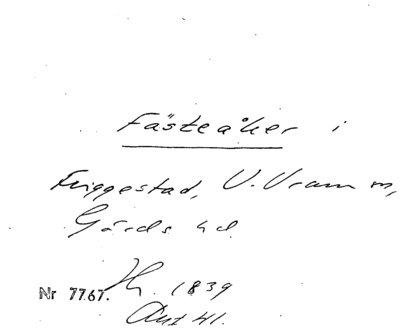 Fästeåker i
Friggestad, V. Vram sn,
Gärds hd.
Nr 7767. Hz. 1839
Akt 41.